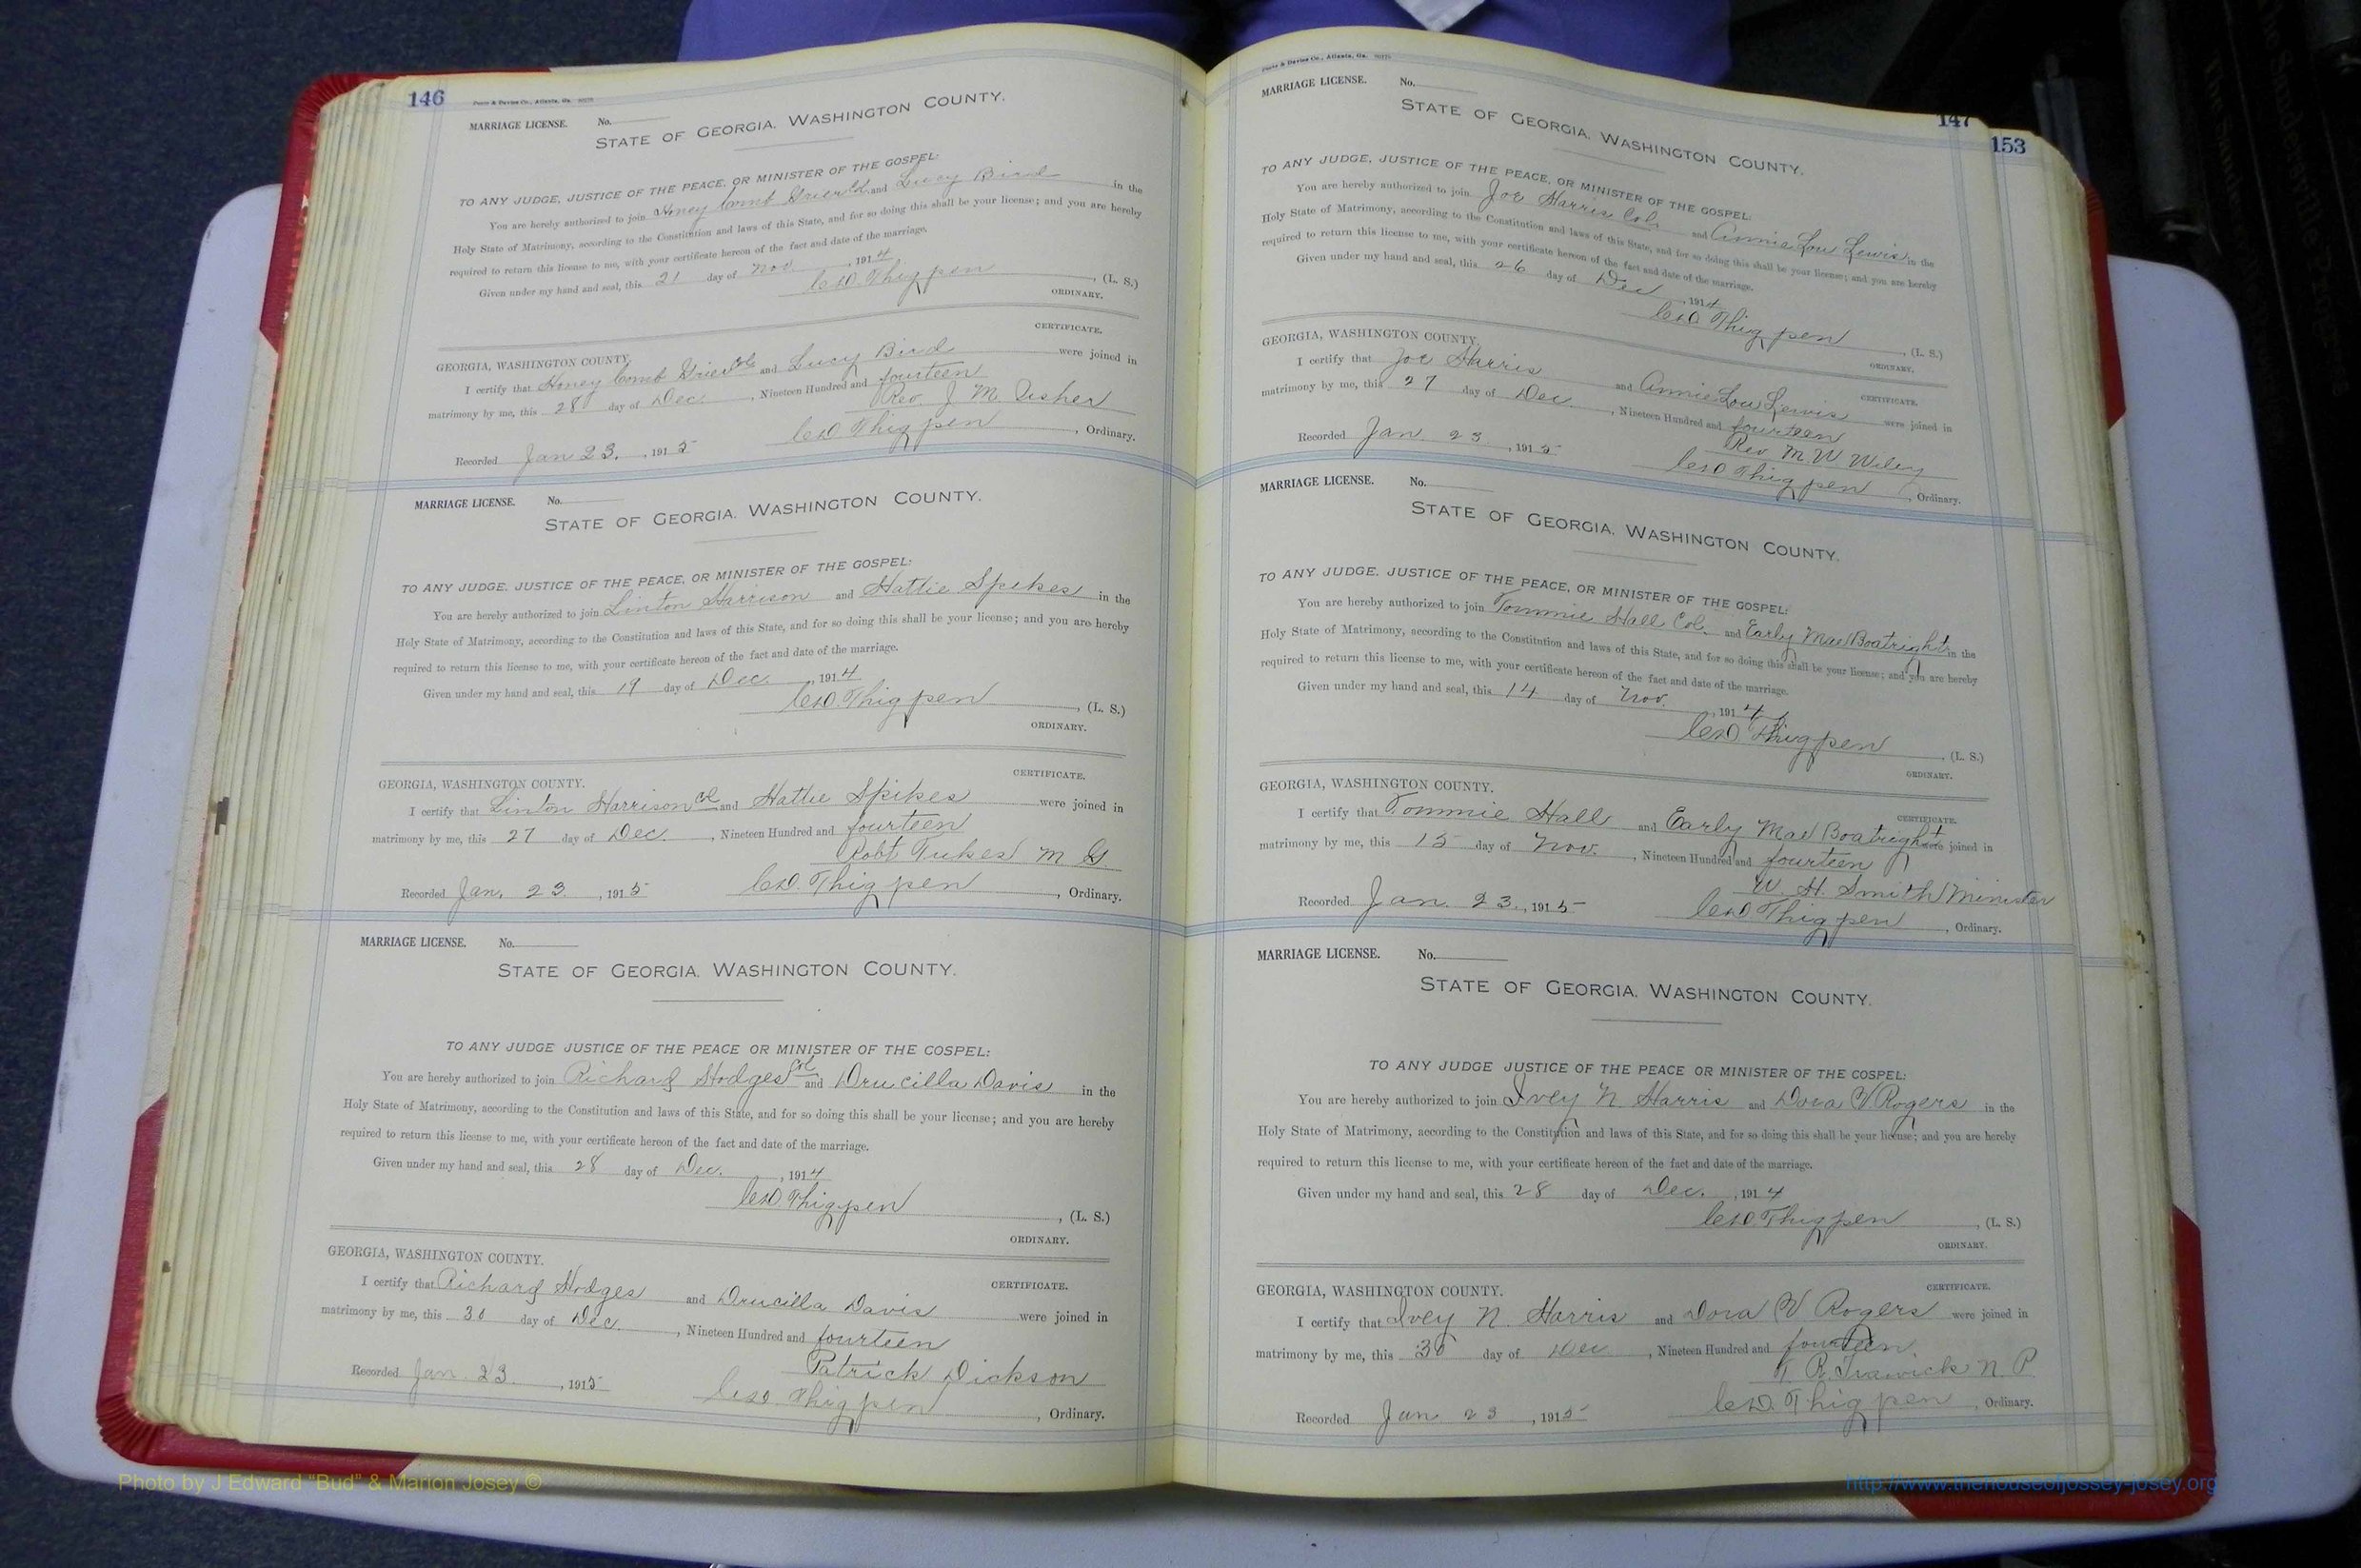 146
Foote & Davies Co., Atlanta, Ga.
MARRIAGE LICENSE. No.
STATE OF GEORGIA. WASHINGTON COUNTY.
TO ANY JUDGE, JUSTICE OF THE PEACE, OR MINISTER OF THE GOSPEL:
You are hereby authorized to join Honey Comb Grier Col and Lucy Bird in the
Holy State of Matrimony, according to the Constitution and laws of this State, and for so doing this shall be your license; and you are hereby
required to return this license to me, with your certificate hereon of the fact and date of the marriage.
Given under my hand and seal, this 21 day of Nov. , 1914
C. D. Thigpen , (L. S.)
ORDINARY.
CERTIFICATE.
GEORGIA, WASHINGTON COUNTY.
I certify that Honey Comb Grier Col and Lucy Bird were joined in
matrimony by me, this 28 day of Dec. , Nineteen Hundred and fourteen
Rev. J. M. Usher
Recorded Jan 23. , 1915 C. D. Thigpen , Ordinary.
MARRIAGE LICENSE. No.
STATE OF GEORGIA. WASHINGTON COUNTY.
TO ANY JUDGE. JUSTICE OF THE PEACE, OR MINISTER OF THE GOSPEL:
You are hereby authorized to join Linton Harrison and Hattie Spikes in the
Holy State of Matrimony, according to the Constitution and laws of this State, and for so doing this shall be your license; and you are hereby
required to return this license to me, with your certificate hereon of the fact and date of the marriage.
Given under my hand and seal, this 19 day of Dec. , 1914
C. D. Thigpen , (L. S.)
ORDINARY.
CERTIFICATE.
GEORGIA, WASHINGTON COUNTY.
I certify that Linton Harrison Col and Hattie Spikes were joined in
matrimony by me, this 27 day of Dec. , Nineteen Hundred and fourteen
Robt Tukes M G
Recorded Jan. 23 , 1915 C. D. Thigpen , Ordinary.
MARRIAGE LICENSE. No.
STATE OF GEORGIA. WASHINGTON COUNTY.
TO ANY JUDGE JUSTICE OF THE PEACE OR MINISTER OF THE GOSPEL:
You are hereby authorized to join Richard Hodges Col and Drucilla Davis in the
Holy State of Matrimony, according to the Constitution and laws of this State, and for so doing this shall be your license; and you are hereby
required to return this license to me, with your certificate hereon of the fact and date of the marriage.
Given under my hand and seal, this 28 day of Dec. , 1914
C. D. Thigpen , (L. S.)
ORDINARY.
GEORGIA, WASHINGTON COUNTY.
CERTIFICATE.
I certify that Richard Hodges and Drucilla Davis were joined in
matrimony by me, this 30 day of Dec. , Nineteen Hundred and fourteen
Patrick Dickson
Recorded Jan. 23. , 1915 C. D. Thigpen , Ordinary.
147
153
Foote & Davies Co., Atlanta, Ga.
MARRIAGE LICENSE. No.
STATE OF GEORGIA. WASHINGTON COUNTY.
TO ANY JUDGE, JUSTICE OF THE PEACE, OR MINISTER OF THE GOSPEL:
You are hereby authorized to join Joe Harris Col. and Annie Lou Lewis in the
Holy State of Matrimony, according to the Constitution and laws of this State, and for so doing this shall be your license; and you are hereby
required to return this license to me, with your certificate hereon of the fact and date of the marriage.
Given under my hand and seal, this 26 day of Dec , 1914
C. D. Thigpen , (L. S.)
ORDINARY.
GEORGIA, WASHINGTON COUNTY.
CERTIFICATE.
I certify that Joe Harris and Annie Lou Lewis were joined in
matrimony by me, this 27 day of Dec. , Nineteen Hundred and fourteen
Rev M. W. Wiley
Recorded Jan 23. , 1915 C. D. Thigpen , Ordinary.
MARRIAGE LICENSE. No.
STATE OF GEORGIA. WASHINGTON COUNTY.
TO ANY JUDGE. JUSTICE OF THE PEACE, OR MINISTER OF THE GOSPEL:
You are hereby authorized to join Tommie Hall Col. and Early Mae Boatright in the
Holy State of Matrimony, according to the Constitution and laws of this State, and for so doing this shall be your license; and you are hereby
required to return this license to me, with your certificate hereon of the fact and date of the marriage.
Given under my hand and seal, this 14 day of Nov. , 1914
C. D. Thigpen , (L. S.)
ORDINARY.
GEORGIA, WASHINGTON COUNTY.
CERTIFICATE.
I certify that Tommie Hall and Early Mae Boatright were joined in
matrimony by me, this 15 day of Nov. , Nineteen Hundred and fourteen
W. H. Smith Minister
Recorded Jan. 23. , 1915 C. D. Thigpen , Ordinary.
MARRIAGE LICENSE. No.
STATE OF GEORGIA. WASHINGTON COUNTY.
TO ANY JUDGE JUSTICE OF THE PEACE OR MINISTER OF THE GOSPEL:
You are hereby authorized to join Ivey N. Harris and Dora V Rogers in the
Holy State of Matrimony, according to the Constitution and laws of this State, and for so doing this shall be your license; and you are hereby
required to return this license to me, with your certificate hereon of the fact and date of the marriage.
Given under my hand and seal, this 28 day of Dec. , 1914
C. D. Thigpen , (L. S.)
ORDINARY.
GEORGIA, WASHINGTON COUNTY.
CERTIFICATE.
I certify that Ivey N. Harris and Dora V Rogers were joined in
matrimony by me, this 30 day of Dec , Nineteen Hundred and fourteen
R. Trawick N P
Recorded Jan 23 , 1915 C. D. Thigpen , Ordinary.
Photo by J Edward "Bud" & Marion Josey ©
http://www.thehouseofjossey-josey.org